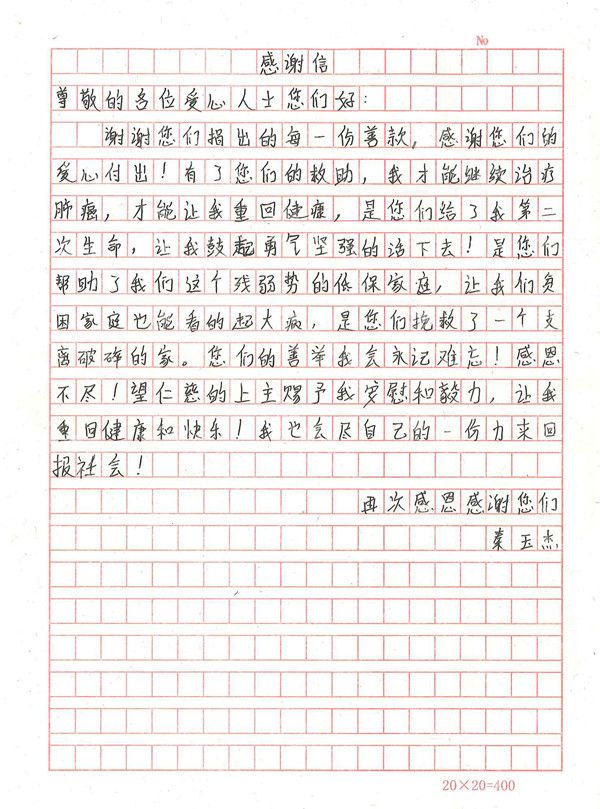 No
感谢信
尊敬的各位爱心人士您们好：
谢谢您们捐出的每一份善款，感谢您们的
爱心付出！有了您们的救助，我才能继续治疗
肿瘤，才能让我重回健康，是您们给了我第二
次生命，让我鼓起勇气坚强的活下去！是您们
帮助了我们这个残弱势的低保家庭，让我们贫
困家庭也能看的起大病，是您们挽救了一个支
离破碎的家。您们的善举我会永记难忘！感恩
不尽！望仁慈的上主赐予我安慰和毅力，让我
重回健康和快乐！我也会尽自己的一份力来回
报社会！
再次感恩感谢您们
秦玉杰
20×20=400